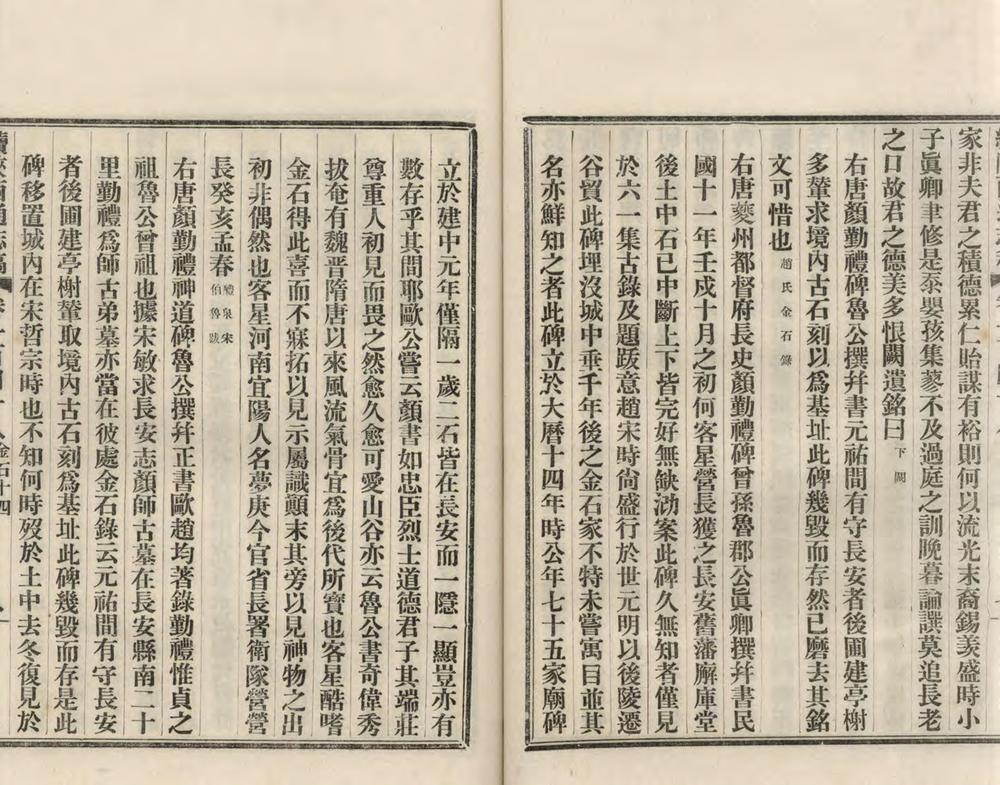 家非夫君之積德累仁貽謀有裕則何以流光末裔錫羨盛時小
子眞卿聿修是忝嬰孩集蓼不及過庭之訓晚暮論譔莫追長老
之口故君之德美多恨闕遺銘曰下闕
右唐顏勤禮碑魯公撰幷書元祐間有守長安者後圃建亭榭
多輦求境內古石刻以爲基址此碑幾毀而存然已磨去其銘
文可惜也趙氏金石錄
右唐夔州都督府長史顏勤禮碑曾孫魯郡公眞卿撰幷書民
國十一年壬戌十月之初何客星營長獲之長安舊藩廨庫堂
後土中石已中斷上下皆完好無缺泐案此碑久無知者僅見
於六一集古錄及題跋意趙宋時尙盛行於世元明以後陵遷
谷貿此碑埋沒城中垂千年後之金石家不特未嘗寓目並其
名亦鮮知之者此碑立於大曆十四年時公年七十五家廟碑
立於建中元年僅隔一歲二石皆在長安而一隱一顯豈亦有
數存乎其間耶歐公嘗云顏書如忠臣烈士道德君子其端莊
尊重人初見而畏之然愈久愈可愛山谷亦云魯公書奇偉秀
拔奄有魏晉隋唐以來風流氣骨宜爲後代所寶也客星酷嗜
金石得此喜而不寐拓以見示屬識顚末其旁以見神物之出
初非偶然也客星河南宜陽人名夢庚今官省長署衛隊營營
長癸亥孟春禮泉宋伯魯跋
右唐顏勤禮神道碑魯公撰幷正書歐趙均著錄勤禮惟貞之
祖魯公曾祖也據宋敏求長安志顏師古墓在長安縣南二十
里勤禮爲師古弟墓亦當在彼處金石錄云元祐間有守長安
者後圃建亭榭輦取境內古石刻爲基址此碑幾毀而存是此
碑移置城內在宋哲宗時也不知何時歿於土中去冬復見於